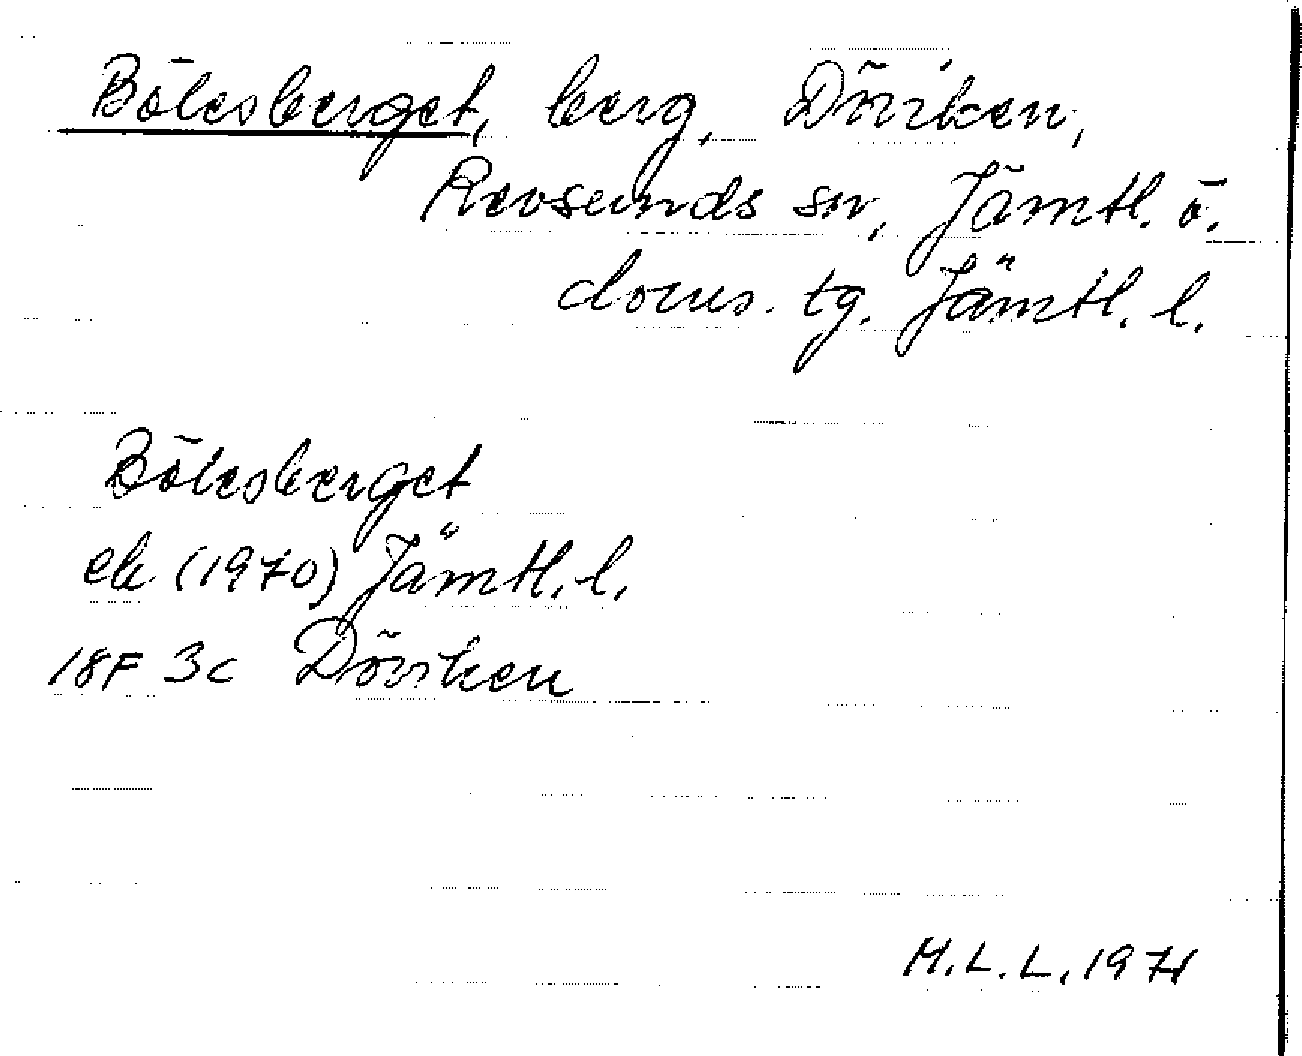 Bölesberget, berg, Döviken,
Revsunds sn, Jämtl. ö.
doms. tg. Jämtl. l.
Bölesberget
ek (1970) Jämtl. l.
18F 3c Döviken
M.L.L. 1971